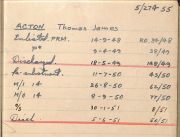 5/274 55
ACTON Thomas James
Enlisted PRM. 14-9-48 RO.39/48
9-4-49 38/49
Discharged 18-5-49 108/49
Re-enlistment 11-7-50 43/50
H/0 14 26-8-50 66/50
H/0 14 8-9-50 77/50
30-1-51 8/51
Died 5-6-51 50/51